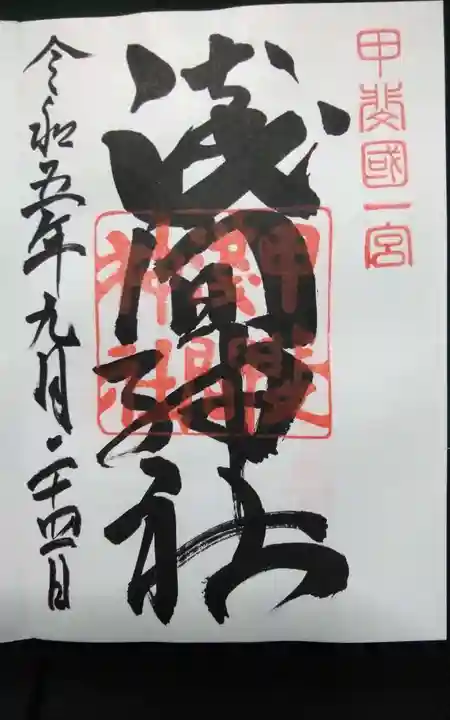 甲斐國一宮
浅間神社
甲斐淺間神社
令和五年九月二十四日